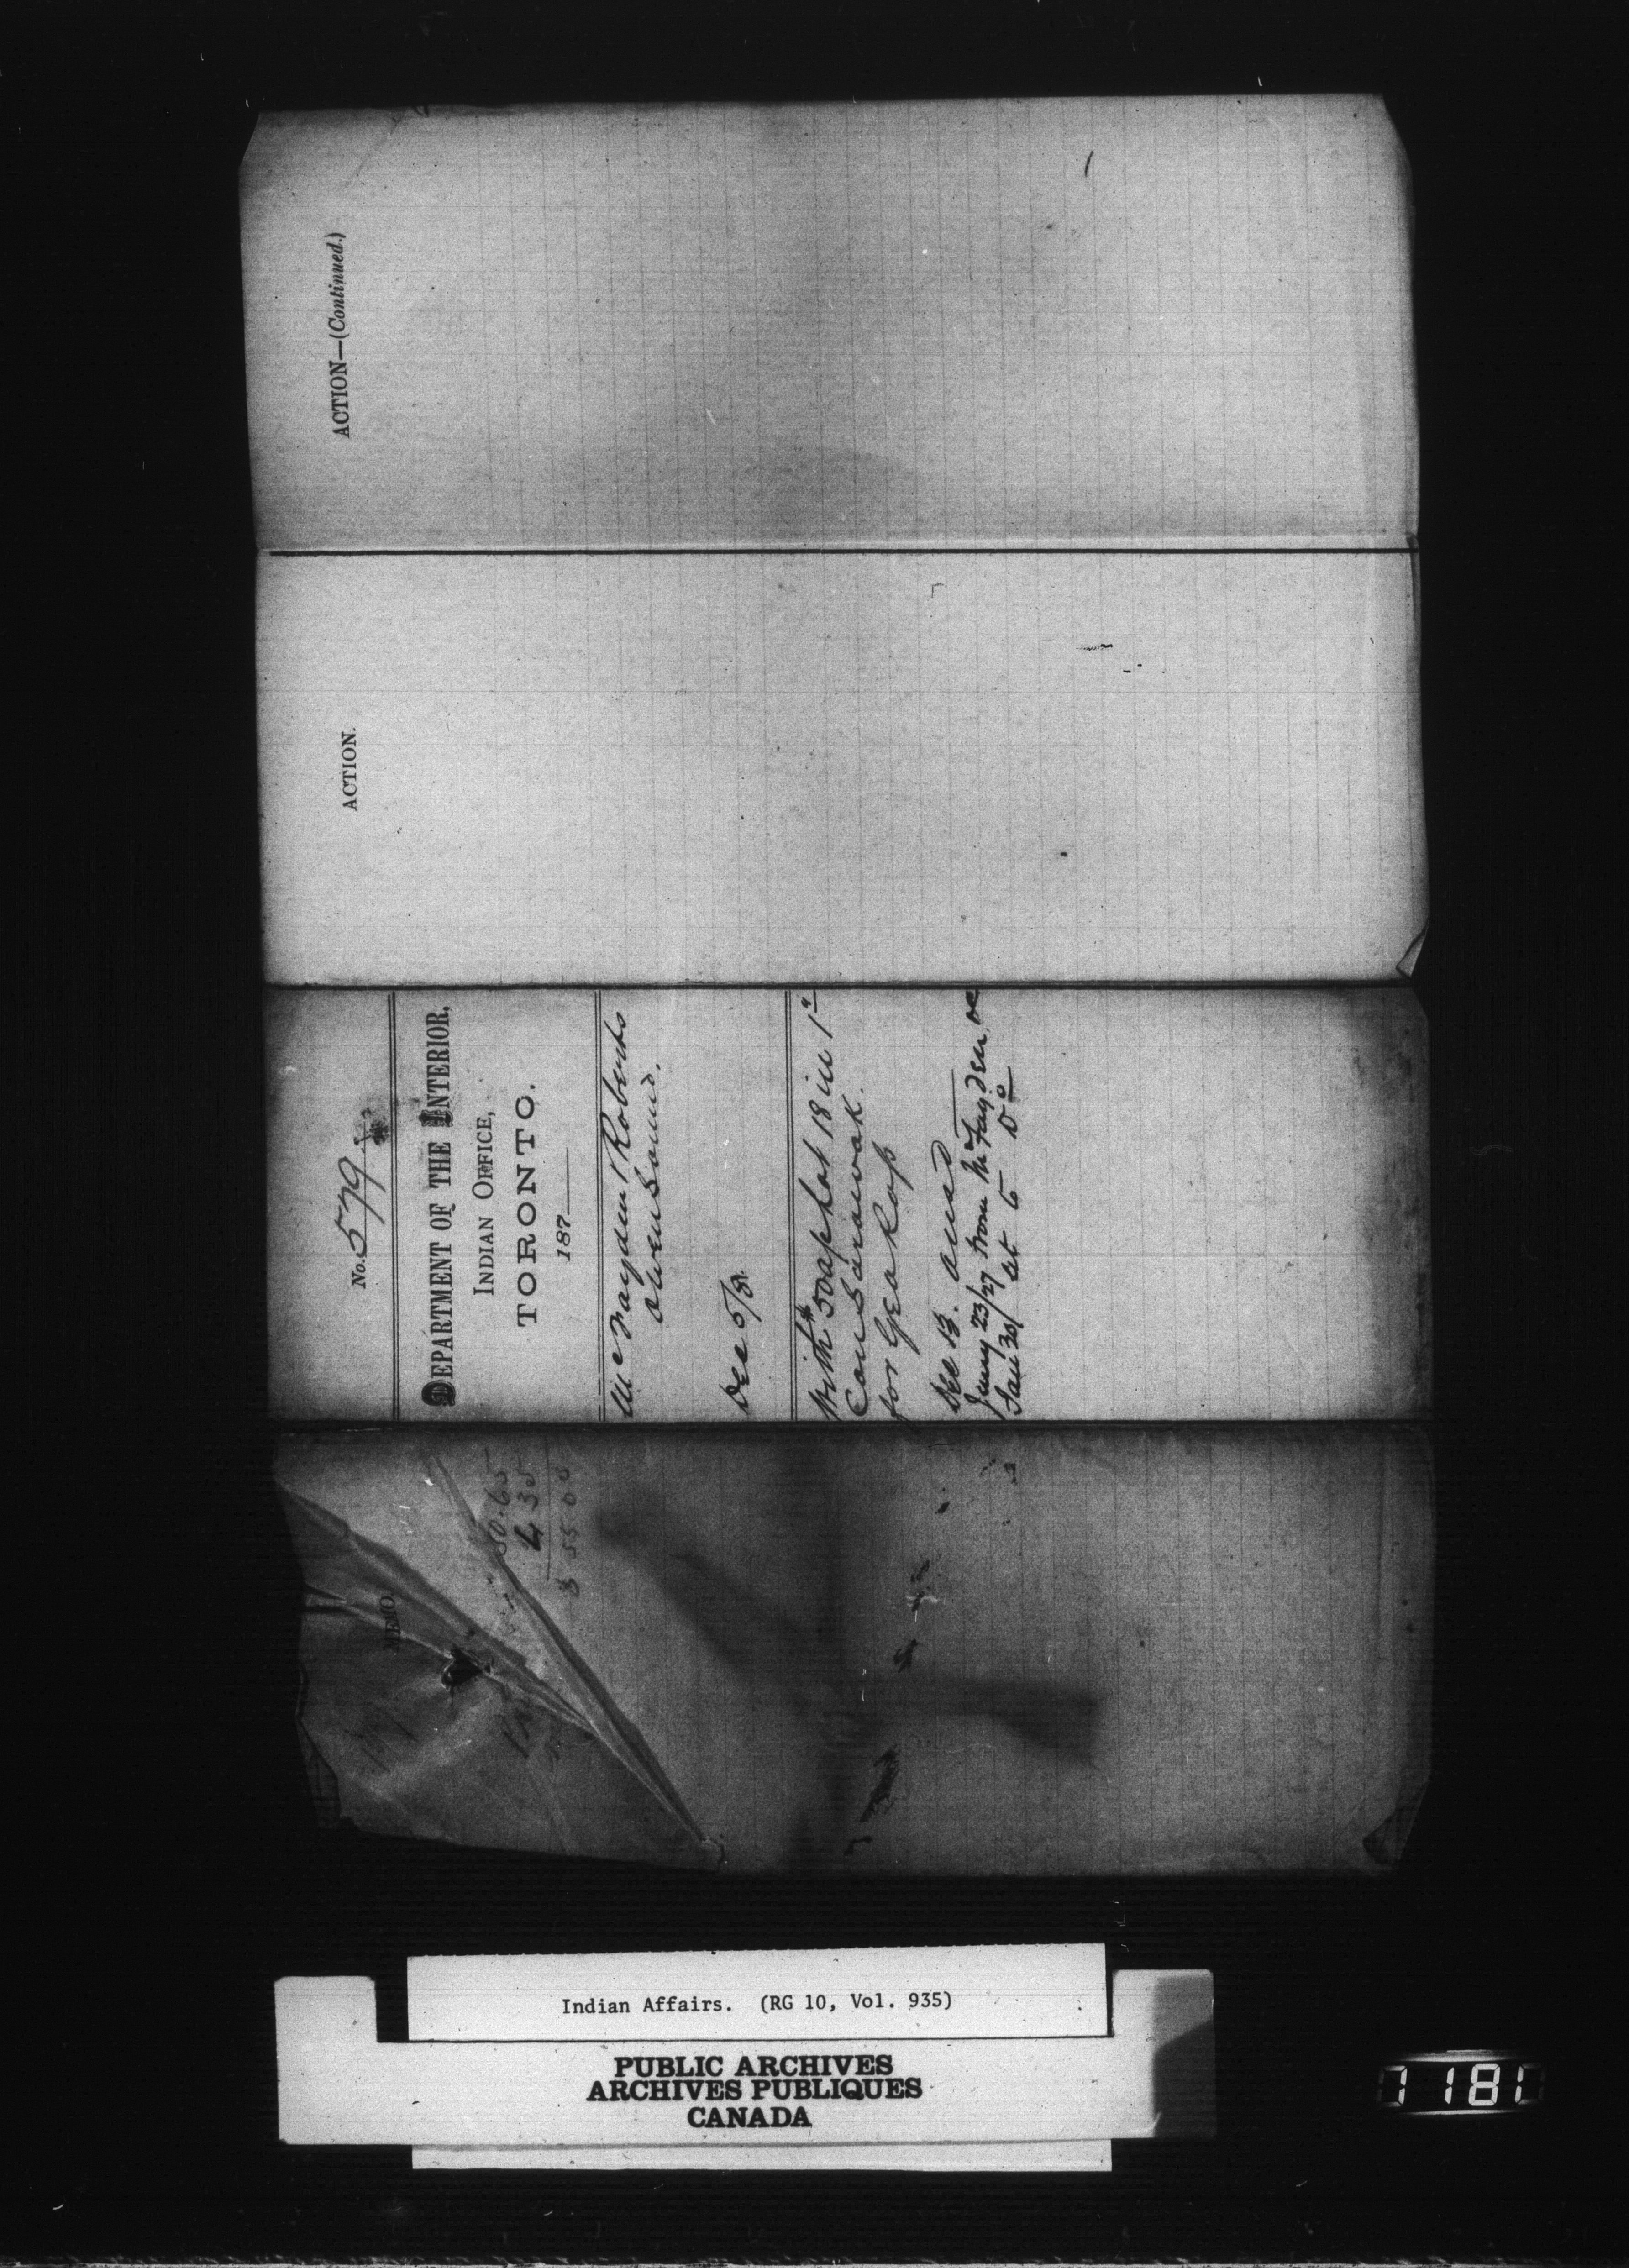 ACTION—(Continued.)
ACTION.
No. 579
DEPARTMENT OF THE INTERIOR,
INDIAN OFFICE,
TORONTO.
187
McFayden & Roberts
Owen Sound.
Dec 5/8
With $50 ap lot 18 in 1st
Con Sarawak
for Geo Ross
Dec 13. ansd
Jany 23/27 from McFayden
Jan 30/ to Do
MEMO.
50.65
4 35
$ 55 00
Indian Affairs. (RG 10, Vol. 935)
PUBLIC ARCHIVES
ARCHIVES PUBLIQUES
CANADA
1181